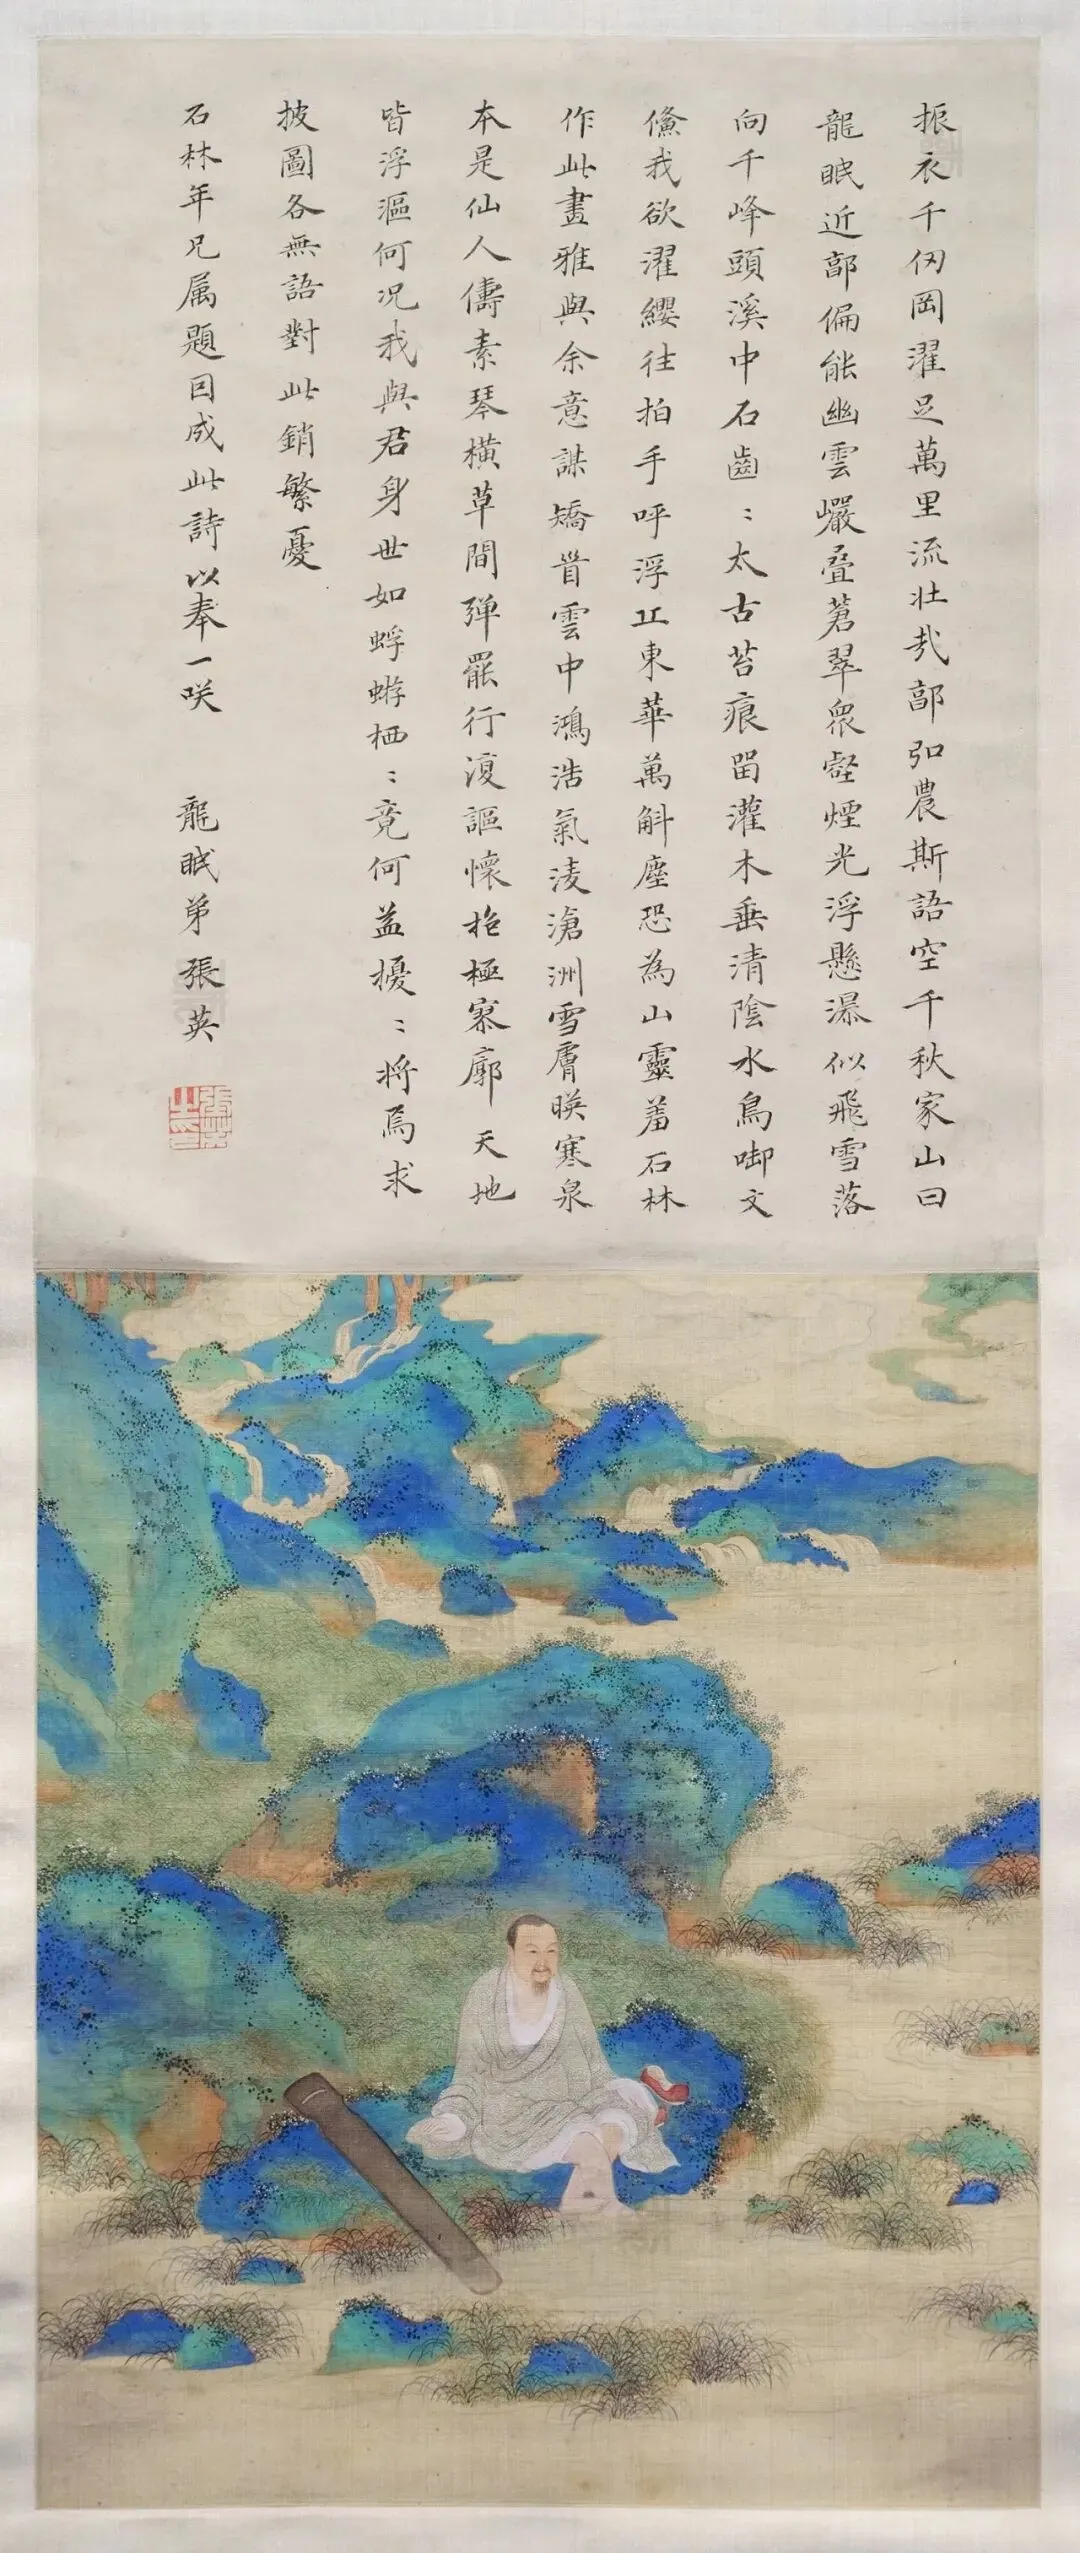 振衣千仞岡濯足萬里流壯哉鄗弘農斯語空千秋家山曰
龍眠近鄗偏能幽雲巖疊蒼翠衆壑煙光浮懸瀑似飛雪落
向千峰頭溪中石齒〻太古苔痕留灌木垂清陰水鳥啣文
鯈我欲濯纓往拍手呼浮丘東華萬斛塵恐為山靈羞石林
作此畫雅與余意謀矯首雲中鴻浩氣淩滄洲雪膚暎寒泉
本是仙人儔素琴橫草間弹罷行復謳懷抱極寥廓天地
皆浮漚何况我與君身世如蜉蝣栖〻竟何益擾〻將焉求
披圖各無語對此銷繁憂
石林年兄属題因成此詩以奉一咲 龍眠弟張英
張英之印